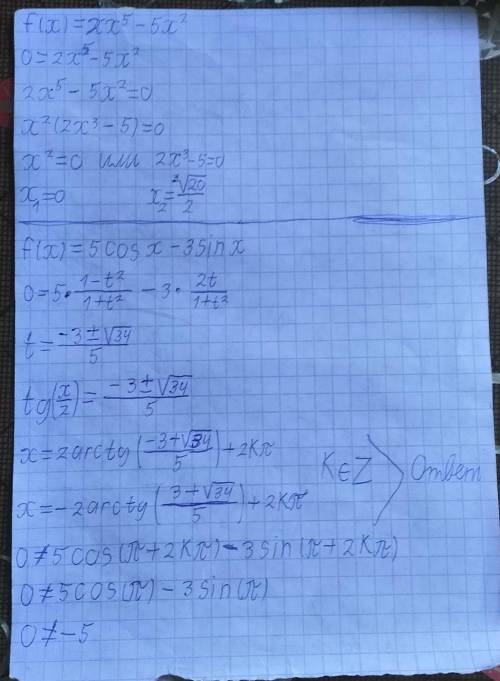 f(x)=2x⁵-5x²
0=2x⁵-5x²
2x⁵-5x²=0
x²(2x³-5)=0
x²=0 или 2x³-5=0
x₁=0 x₂=³√20/2
f(x)=5cosx-3sinx
0=5•(1-t²)/(1+t²)-3•2t/(1+t²)
t=(-3±√34)/5
tg(x/2)=(-3±√34)/5
x=2arctg((-3+√34)/5)+2Kπ
x=-2arctg((3+√34)/5)+2Kπ K∈Z > Ответ
0≠5cos(π+2Kπ)-3sin(π+2Kπ)
0≠5cos(π)-3sin(π)
0≠-5